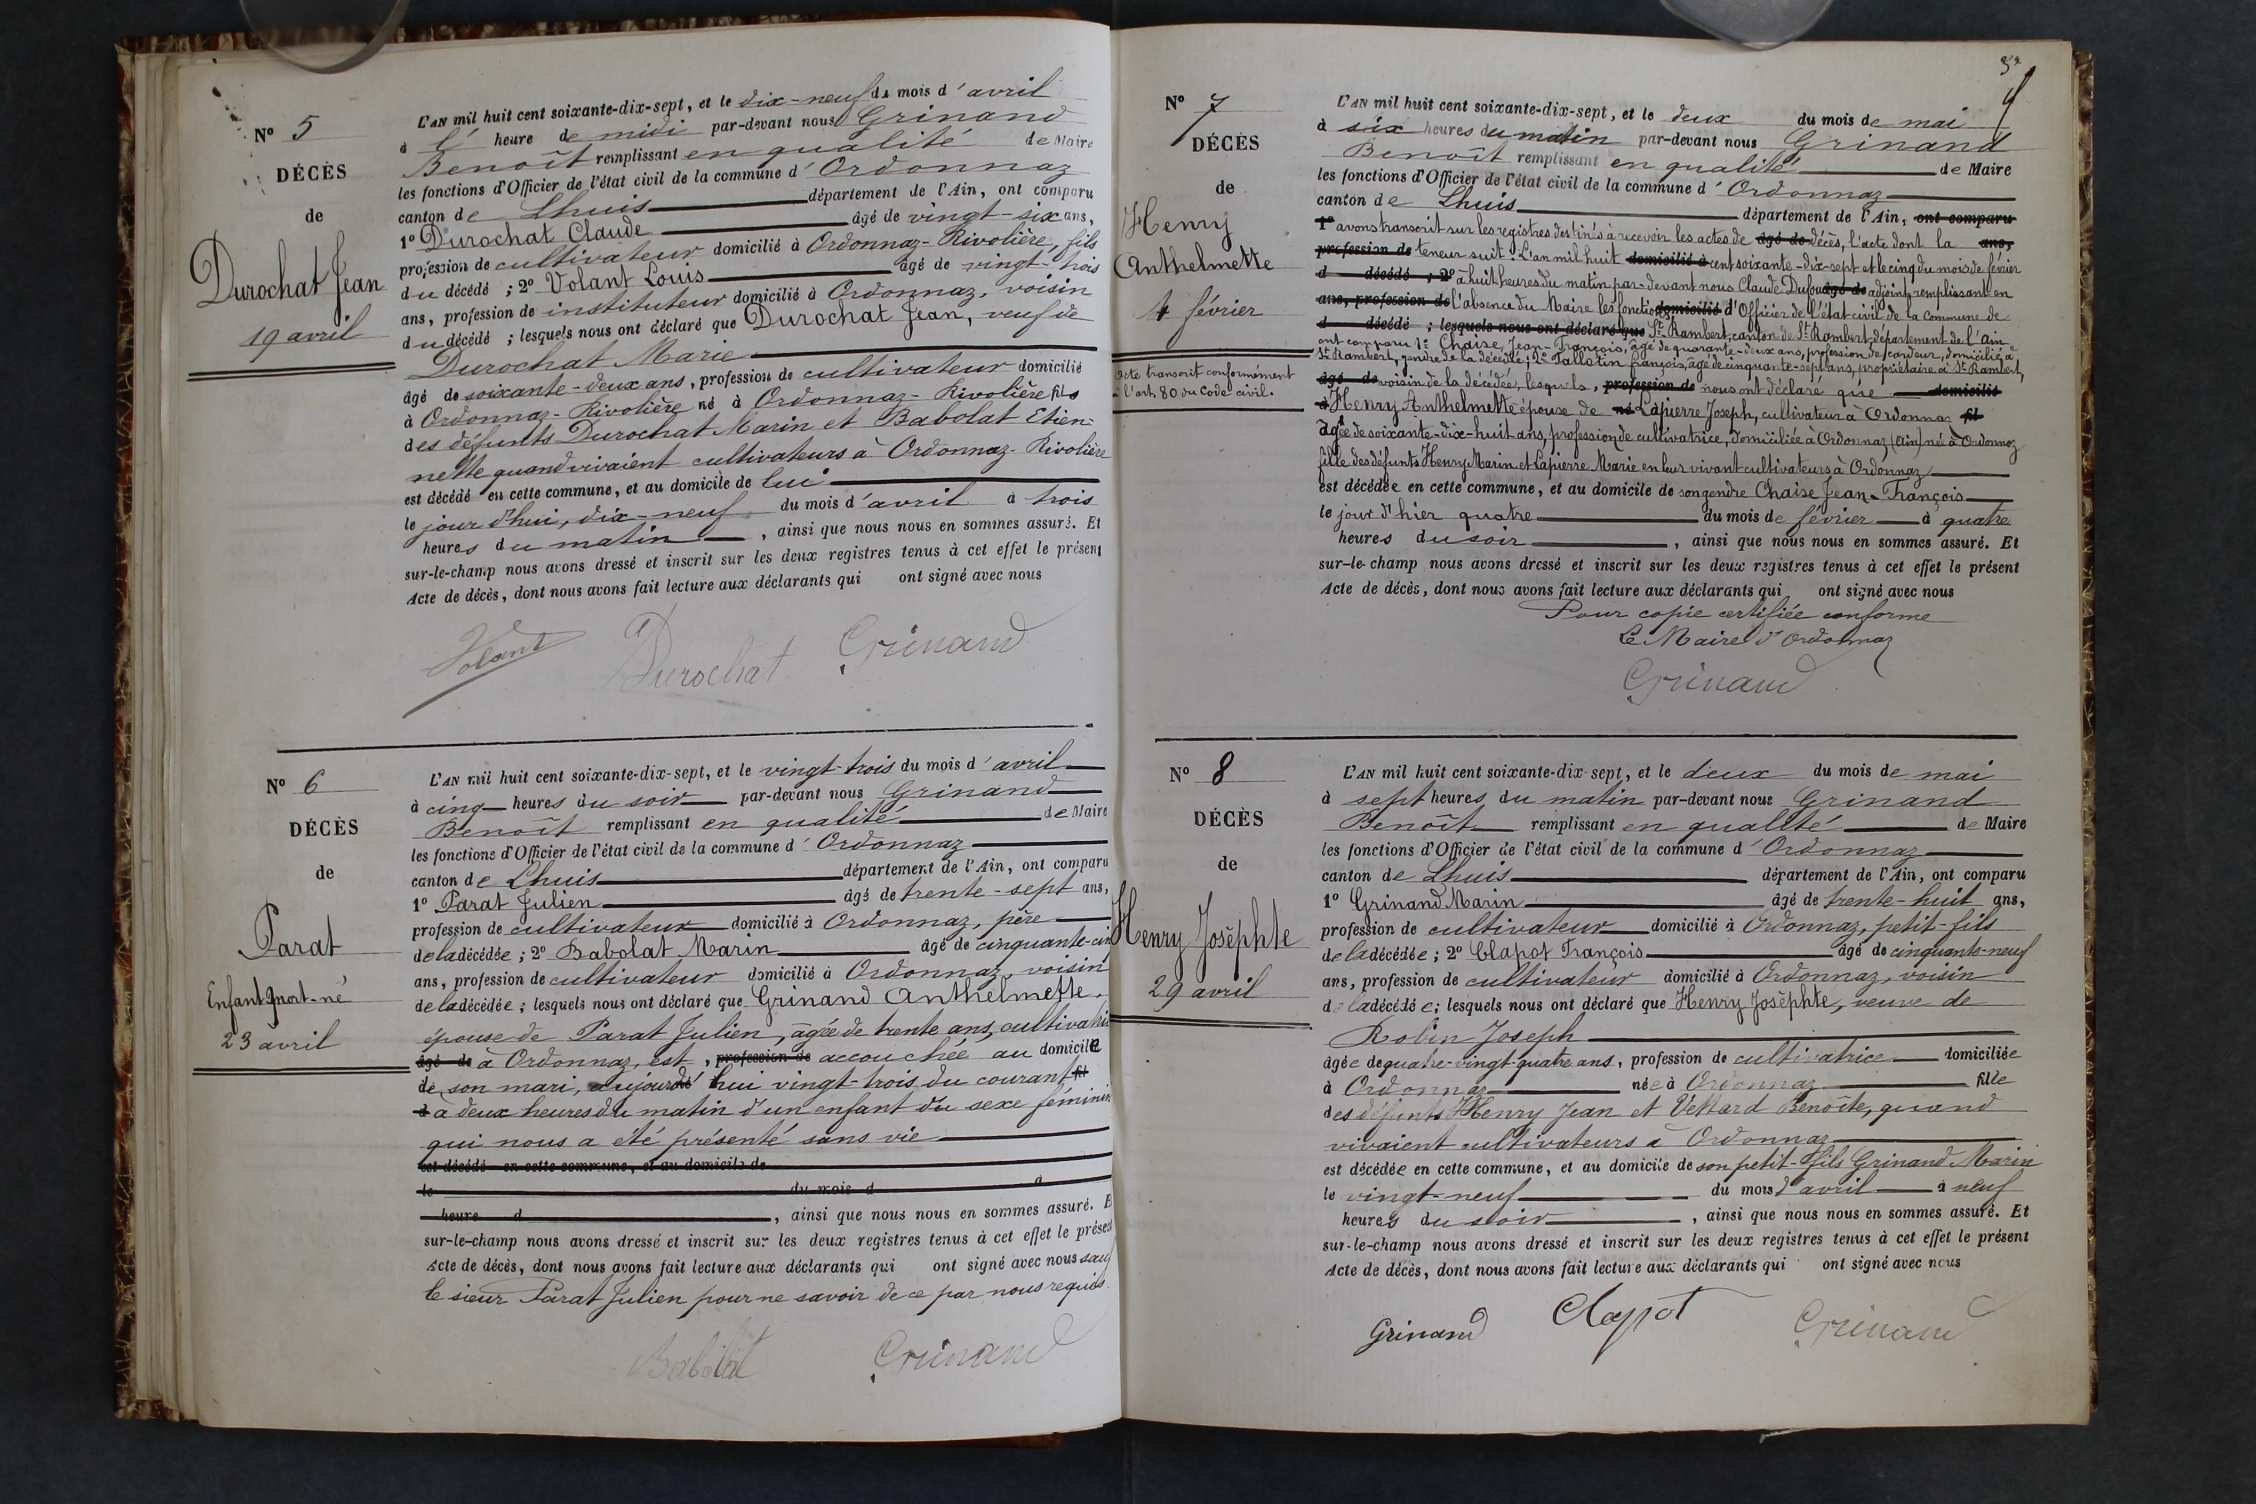 N° 5
DÉCÈS
de
Durochat Jean
19 avril
L'AN mil huit cent soixante-dix-sept, et le dix-neuf du mois d'avril
à heure de midi par-devant nous Grinand
Benoît remplissant en qualité de Maire
les fonctions d'Officier de l'état civil de la commune d'Ordonnaz
canton de Lhuis département de l'Ain, ont comparu
1° Durochat Claude âgé de vingt-six ans,
profession de cultivateur domicilié à Ordonnaz-Rivolière, fils
du décédé ; 2° Volant Louis âgé de vingt-trois
ans, profession de instituteur domicilié à Ordonnaz, voisin
du décédé ; lesquels nous ont déclaré que Durochat Jean, veuf de
Durochat Marie
âgé de soixante-deux ans, profession de cultivateur domicilié
à Ordonnaz-Rivolière né à Ordonnaz-Rivolière fils
des défunts Durochat Marin et Babolat Etien-
nette quand vivaient cultivateurs à Ordonnaz-Rivolière
est décédé en cette commune, et au domicile de lui
le jour d'hui, dix-neuf du mois d'avril à trois
heures du matin, ainsi que nous nous en sommes assuré. Et
sur-le-champ nous avons dressé et inscrit sur les deux registres tenus à cet effet le présent
Acte de décès, dont nous avons fait lecture aux déclarants qui ont signé avec nous
Volant Durochat Grinand
N° 6
DÉCÈS
de
Parat
Enfant mort-né
23 avril
L'AN mil huit cent soixante-dix-sept, et le vingt-trois du mois d'avril
à cinq heures du soir par-devant nous Grinand
Benoît remplissant en qualité de Maire
les fonctions d'Officier de l'état civil de la commune d'Ordonnaz
canton de Lhuis département de l'Ain, ont comparu
1° Parat Julien âgé de trente-sept ans,
profession de cultivateur domicilié à Ordonnaz, père
de la décédée ; 2° Babolat Marin âgé de cinquante-cin
ans, profession de cultivateur domicilié à Ordonnaz, voisin
de la décédée ; lesquels nous ont déclaré que Grinand Anthelmette,
épouse de Parat Julien, âgée de trente ans, cultivatri
âgé de à Ordonnaz, est, profession de accouchée au domicile
de son mari, aujourd'hui vingt-trois du courant fil
à à deux heures du matin d'un enfant du sexe féminin
qui nous a été présenté sans vie
est décédé en cette commune, et au domicile de
le du mois d à
heure d, ainsi que nous nous en sommes assuré. E
sur-le-champ nous avons dressé et inscrit sur les deux registres tenus à cet effet le présent
Acte de décès, dont nous avons fait lecture aux déclarants qui ont signé avec nous sauf
le sieur Parat Julien pour ne savoir de ce par nous requis.
Babolat Grinand
N° 7
DÉCÈS
de
Henry
Anthelmette
4 février
Acte transcrit conformément
à l'art. 80 du Code civil.
L'AN mil huit cent soixante-dix-sept, et le deux du mois de mai
à six heures du matin par-devant nous Grinand
Benoît remplissant en qualité de Maire
les fonctions d'Officier de l'état civil de la commune d'Ordonnaz
canton de Lhuis département de l'Ain, ont comparu
1° avons transcrit sur les registres destinés à recevoir les actes de âgé de décès, l'acte dont la ans,
profession de teneur suit : L'an mil huit domicilié à cent soixante-dix-sept et le cinq du mois de février
d décédé ; 2° à huit heures du matin par-devant nous Claude Dufour âgé de adjoint, remplissant en
ans, profession de l'absence du Maire les fonctions domicilié d'Officier de l'état civil de la commune de
d décédé ; lesquels nous ont déclaré que St Rambert, canton de St Rambert, département de l'Ain
ont comparu 1° Chaise, Jean-François, âgé de quarante-deux ans, profession de cardeur, domicilié à
St Rambert, gendre de la décédée ; 2° Tallotin françois, âgé de cinquante-sept ans, propriétaire à St Rambert,
âgé de voisin de la décédée, lesquels, profession de nous ont déclaré que domicilié
à Henry Anthelmette épouse de né Lapierre Joseph, cultivateur à Ordonnaz fil
âgée de soixante-dix-huit ans, profession de cultivatrice, domiciliée à Ordonnaz (Ain) né à Ordonnaz
fille des défunts Henry Marin et Lapierre Marie en leur vivant cultivateurs à Ordonnaz
est décédée en cette commune, et au domicile de son gendre Chaise Jean-François
le jour d'hier quatre du mois de février à quatre
heures du soir, ainsi que nous nous en sommes assuré. Et
sur-le-champ nous avons dressé et inscrit sur les deux registres tenus à cet effet le présent
Acte de décès, dont nous avons fait lecture aux déclarants qui ont signé avec nous
Pour copie certifiée conforme
Le Maire d'Ordonnaz
Grinand
N° 8
DÉCÈS
de
Henry Josèphte
29 avril
L'AN mil huit cent soixante-dix-sept, et le deux du mois de mai
à sept heures du matin par-devant nous Grinand
Benoît remplissant en qualité de Maire
les fonctions d'Officier de l'état civil de la commune d'Ordonnaz
canton de Lhuis département de l'Ain, ont comparu
1° Grinand Marin âgé de trente-huit ans,
profession de cultivateur domicilié à Ordonnaz, petit-fils
de la décédée ; 2° Clapot François âgé de cinquante-neuf
ans, profession de cultivateur domicilié à Ordonnaz, voisin
de la décédée ; lesquels nous ont déclaré que Henry Josèphte, veuve de
Robin Joseph
âgée de quatre-vingt-quatre ans, profession de cultivatrice domiciliée
à Ordonnaz née à Ordonnaz fille
des défunts Henry Jean et Vettard Benoîte, quand
vivaient cultivateurs à Ordonnaz
est décédée en cette commune, et au domicile de son petit-fils Grinand Marin
le vingt-neuf du mois d'avril à neuf
heures du soir, ainsi que nous nous en sommes assuré. Et
sur-le-champ nous avons dressé et inscrit sur les deux registres tenus à cet effet le présent
Acte de décès, dont nous avons fait lecture aux déclarants qui ont signé avec nous
Grinand Clapot Grinand